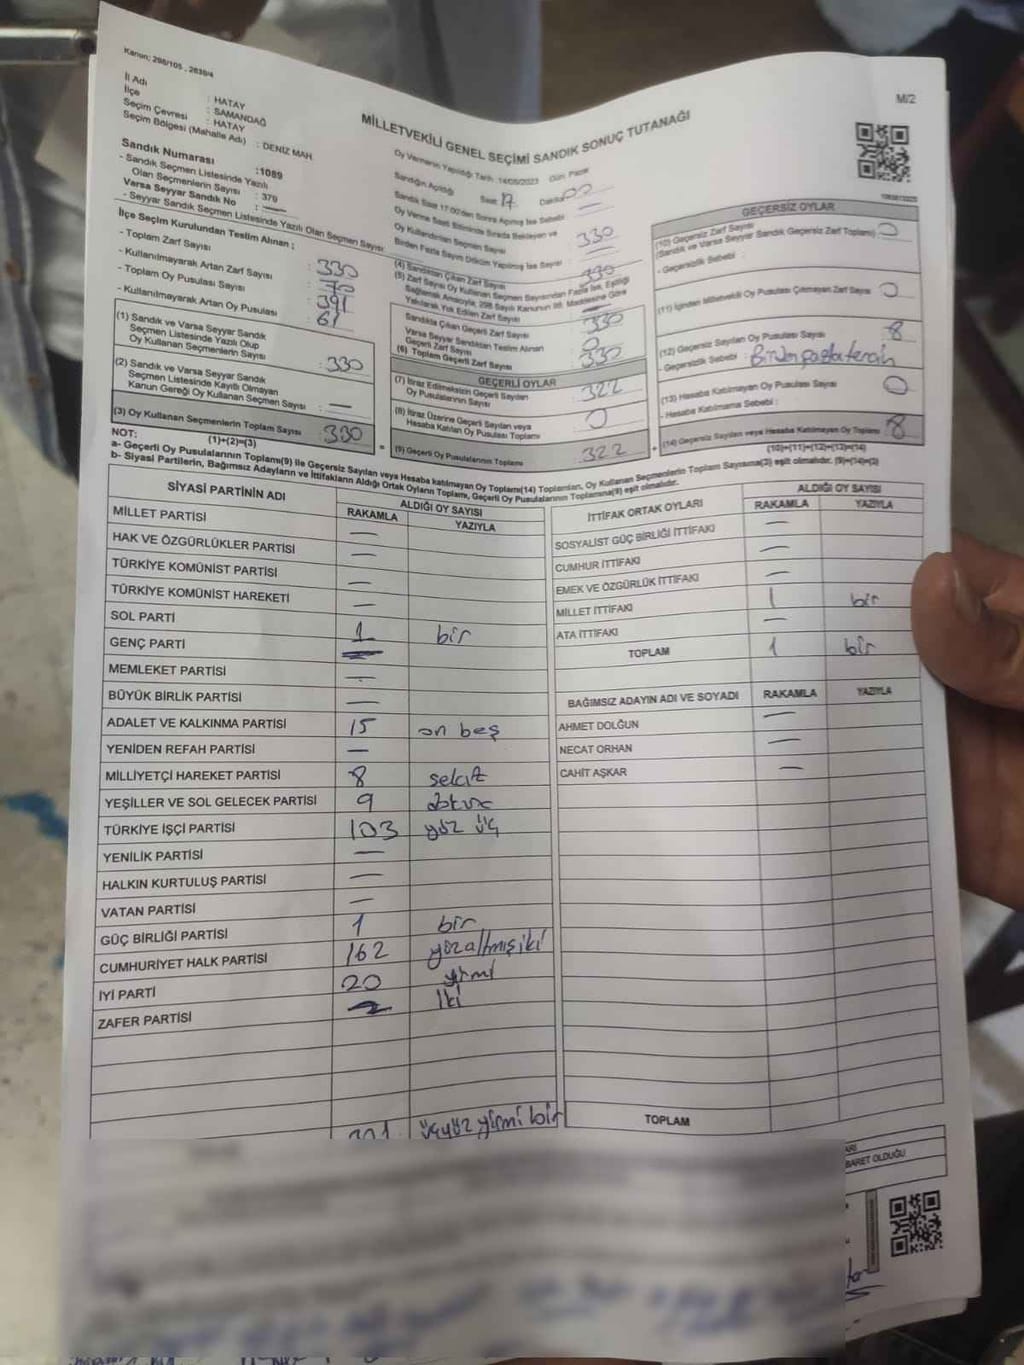 Kanun; 298/105 , 2839/4
M/2
İl Adı : HATAY
İlçe : SAMANDAĞ
Seçim Çevresi : HATAY
Seçim Bölgesi (Mahalle Adı) : DENİZ MAH
MİLLETVEKİLİ GENEL SEÇİMİ SANDIK SONUÇ TUTANAĞI
Sandık Numarası :1089
- Sandık Seçmen Listesinde Yazılı
Olan Seçmenlerin Sayısı : 379
Varsa Seyyar Sandık No : —
- Seyyar Sandık Seçmen Listesinde Yazılı Olan Seçmen Sayısı
Oy Vermenin Yapıldığı Tarih :14/05/2023 Gün: Pazar
Sandığın Açıldığı Saat: 17 Dakika: 00
Sandık Saat 17:00'den Sonra Açılmış İse Sebebi : —
Oy Verme Saati Bitiminde Sırada Bekleyen ve
Oy Kullandırılan Seçmen Sayısı : 330
Birden Fazla Sayım Döküm Yapılmış İse Sayısı : —
İlçe Seçim Kurulundan Teslim Alınan ;
- Toplam Zarf Sayısı : 330
- Kullanılmayarak Artan Zarf Sayısı : 70
- Toplam Oy Pusulası Sayısı : 391
- Kullanılmayarak Artan Oy Pusulası : 61
(1) Sandık ve Varsa Seyyar Sandık
Seçmen Listesinde Yazılı Olup
Oy Kullanan Seçmenlerin Sayısı : 330
(2) Sandık ve Varsa Seyyar Sandık
Seçmen Listesinde Kayıtlı Olmayan
Kanun Gereği Oy Kullanan Seçmen Sayısı : —
(3) Oy Kullanan Seçmenlerin Toplam Sayısı : 330
(1)+(2)=(3)
(4) Sandıktan Çıkan Zarf Sayısı : 330
(5) Zarf Sayısı Oy Kullanan Seçmen Sayısından Fazla İse, Eşitliği
Sağlamak Amacıyla; 298 Sayılı Kanunun 98. Maddesine Göre
Yakılarak Yok Edilen Zarf Sayısı : —
Sandıkta Çıkan Geçerli Zarf Sayısı : 330
Varsa Seyyar Sandıktan Teslim Alınan
Geçerli Zarf Sayısı : 0
(6) Toplam Geçerli Zarf Sayısı : 330
GEÇERLİ OYLAR
(7) İtiraz Edilmeksizin Geçerli Sayılan
Oy Pusulalarının Sayısı : 322
(8) İtiraz Üzerine Geçerli Sayılan veya
Hesaba Katılan Oy Pusulası Toplamı : 0
= (9) Geçerli Oy Pusulalarının Toplamı : 322 +
GEÇERSİZ OYLAR
(10) Geçersiz Zarf Sayısı
(Sandık ve Varsa Seyyar Sandık Geçersiz Zarf Toplamı) : 0
- Geçersizlik Sebebi :
(11) İçinden Milletvekili Oy Pusulası Çıkmayan Zarf Sayısı : 0
(12) Geçersiz Sayılan Oy Pusulası Sayısı : 8
- Geçersizlik Sebebi : Birden fazla tercih
(13) Hesaba Katılmayan Oy Pusulası Sayısı : 0
- Hesaba Katılmama Sebebi :
(14) Geçersiz Sayılan veya Hesaba Katılmayan Oy Toplamı : 8
(10)+(11)+(12)+(13)=(14)
NOT:
a- Geçerli Oy Pusulalarının Toplamı(9) ile Geçersiz Sayılan veya Hesaba katılmayan Oy Toplamı(14) Toplamları, Oy Kullanan Seçmenlerin Toplam Sayısına(3) eşit olmalıdır. (9)+(14)=(3)
b- Siyasi Partilerin, Bağımsız Adayların ve İttifakların Aldığı Ortak Oyların Toplamı, Geçerli Oy Pusulalarının Toplamına(9) eşit olmalıdır.
SİYASİ PARTİNİN ADI ALDIĞI OY SAYISI
RAKAMLA YAZIYLA
MİLLET PARTİSİ —
HAK VE ÖZGÜRLÜKLER PARTİSİ —
TÜRKİYE KOMÜNİST PARTİSİ —
TÜRKİYE KOMÜNİST HAREKETİ —
SOL PARTİ 1 bir
GENÇ PARTİ —
MEMLEKET PARTİSİ —
BÜYÜK BİRLİK PARTİSİ —
ADALET VE KALKINMA PARTİSİ 15 on beş
YENİDEN REFAH PARTİSİ —
MİLLİYETÇİ HAREKET PARTİSİ 8 sekiz
YEŞİLLER VE SOL GELECEK PARTİSİ 9 dokuz
TÜRKİYE İŞÇİ PARTİSİ 103 yüz üç
YENİLİK PARTİSİ —
HALKIN KURTULUŞ PARTİSİ —
VATAN PARTİSİ —
GÜÇ BİRLİĞİ PARTİSİ 1 bir
CUMHURİYET HALK PARTİSİ 162 yüzaltmışiki
İYİ PARTİ 20 yirmi
ZAFER PARTİSİ 2 İki
321 üçyüz yirmi bir
İTTİFAK ORTAK OYLARI ALDIĞI OY SAYISI
RAKAMLA YAZIYLA
SOSYALİST GÜÇ BİRLİĞİ İTTİFAKI —
CUMHUR İTTİFAKI —
EMEK VE ÖZGÜRLÜK İTTİFAKI —
MİLLET İTTİFAKI 1 bir
ATA İTTİFAKI —
TOPLAM 1 bir
BAĞIMSIZ ADAYIN ADI VE SOYADI RAKAMLA YAZIYLA
AHMET DOLĞUN —
NECAT ORHAN —
CAHİT AŞKAR —
TOPLAM
BARET OLDUĞU